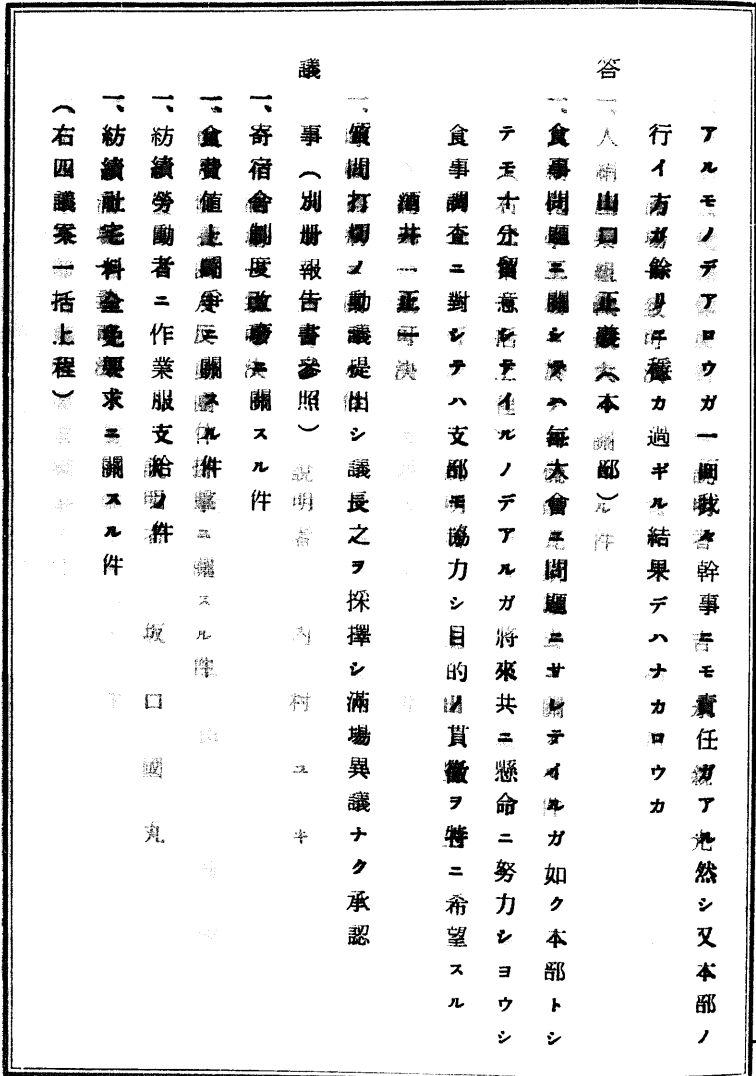 アルモノデアロウガ一面我々幹事ニモ責任ガアル然シ又本部ノ
行イ方ガ餘リニ穩カ過ギル結果デハナカロウカ
答　山口正義（本部）
一、食事問題ニ關シテハ毎大會ニ問題ニサレテイルガ如ク本部トシ
テモ十分留意シテイルノデアルガ將來共ニ懸命ニ努力シヨウシ
食事調査ニ對シテハ支部モ協力シ目的ノ貫徹ヲ特ニ希望スル
酒井一正
一、質問打切ノ動議提出シ議長之ヲ採擇シ滿場異議ナク承認
議事（別册報告書參照）
一、寄宿舍制度改善ニ關スル件
一、食費値上鬪爭ニ關スル件
一、紡績勞働者ニ作業服支給ノ件
一、紡績社宅料金免要求ニ關スル件
（右四議案一括上程）